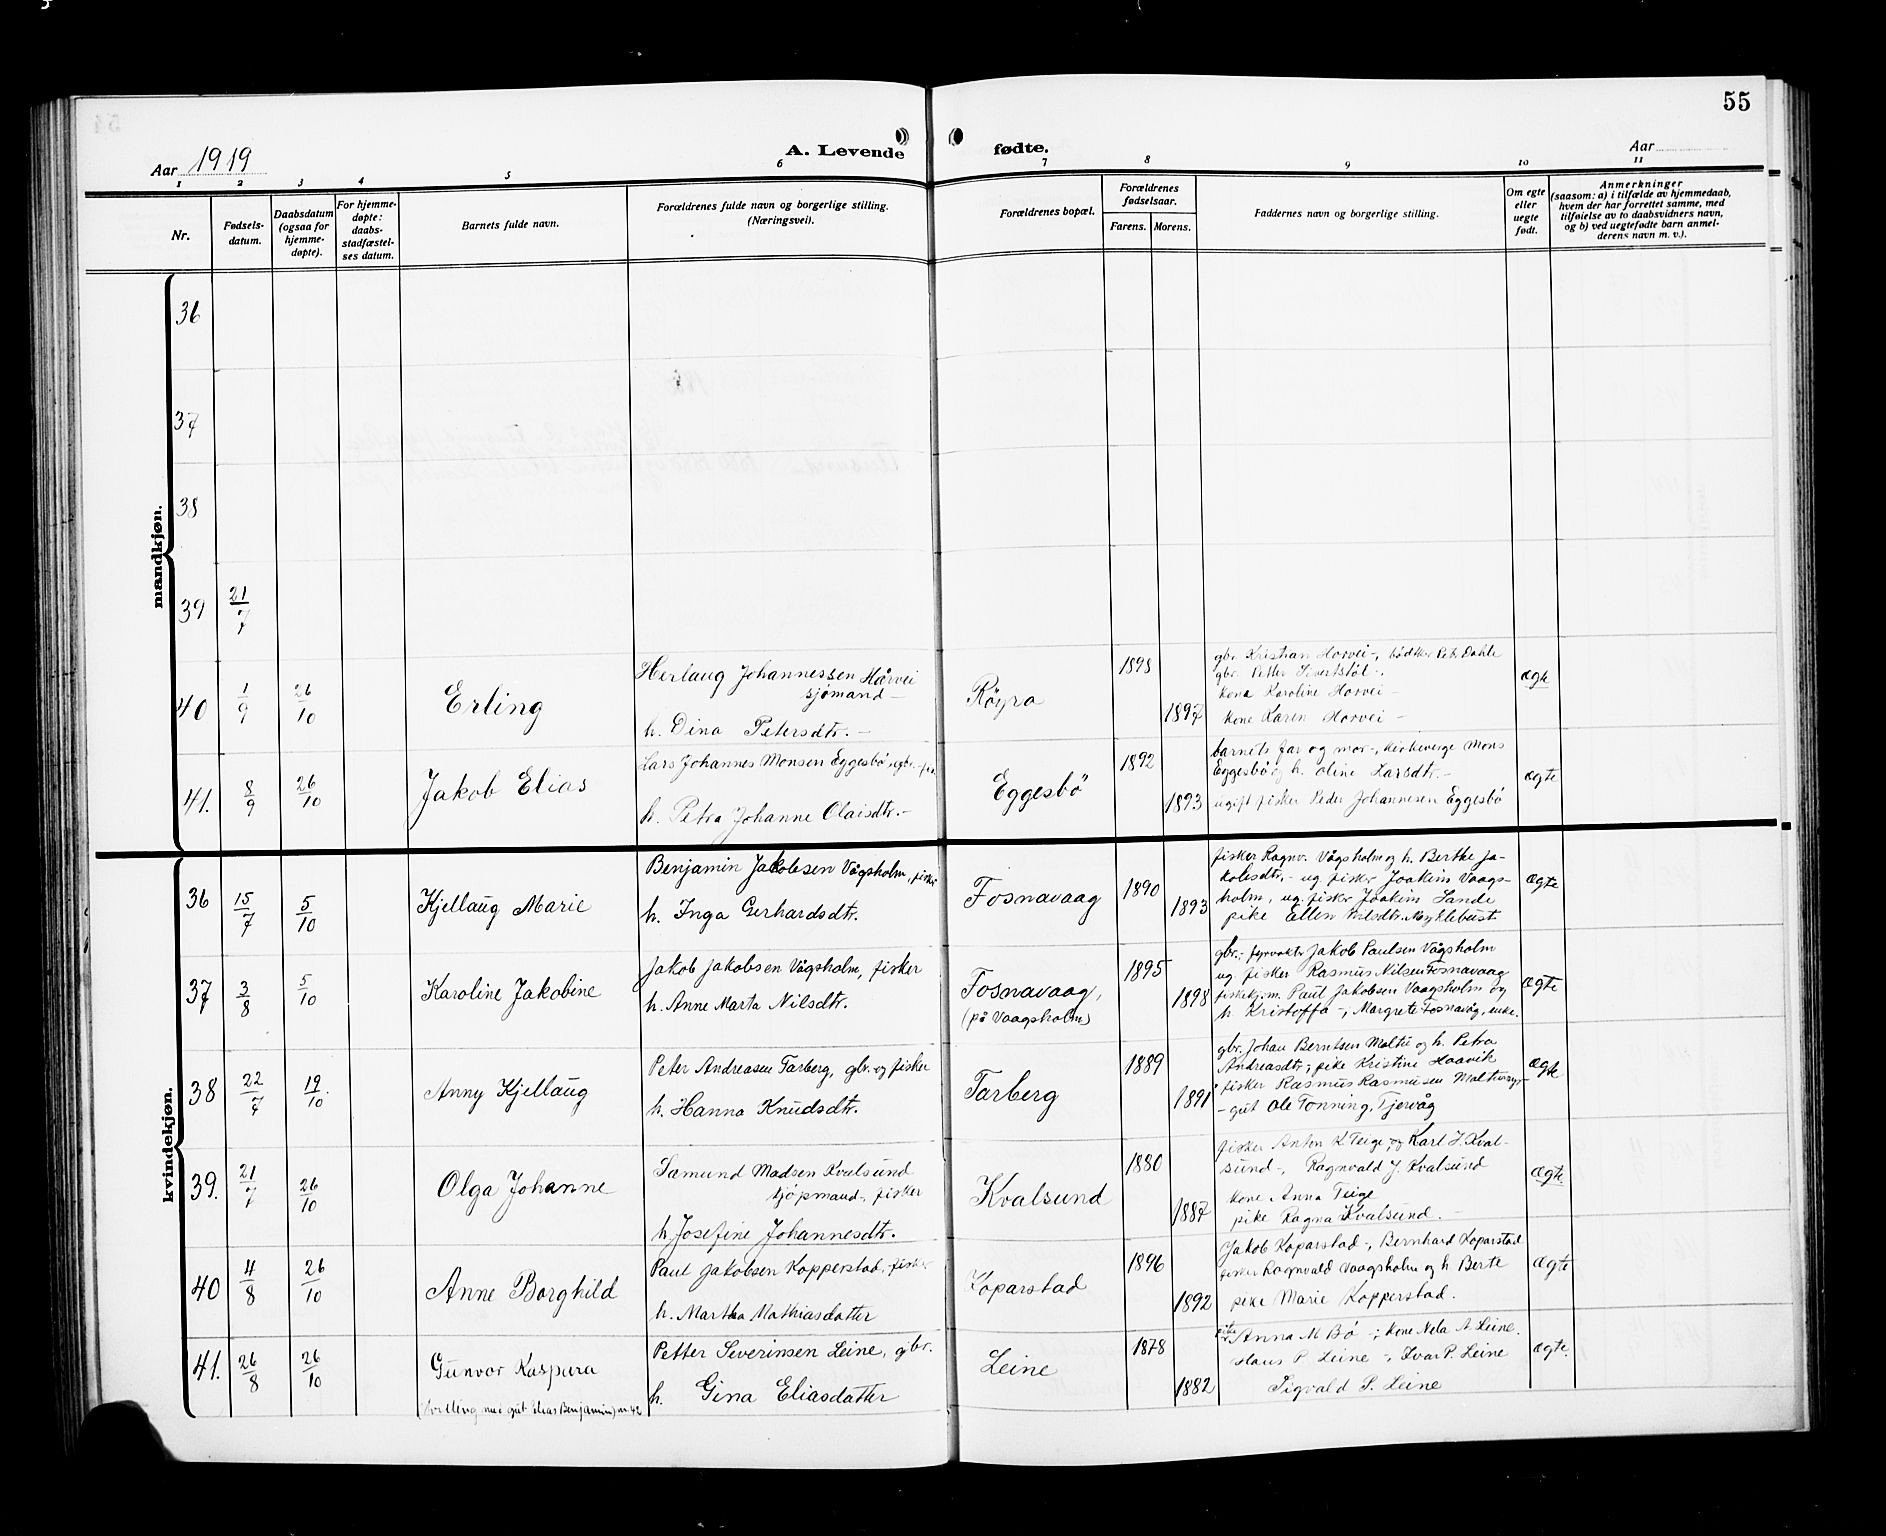 55
Aar 1919
A. Levende
fødte.
Aar
1 2 3 4 5 6 7 8 9 10 11
Nr.
Fødsels-
datum.
Daabsdatum
(ogsaa for
hjemme-
døpte).
For hjemme-
døpte:
daabs-
stadfæstel-
ses datum.
Barnets fulde navn.
Forældrenes fulde navn og borgerlige stilling.
(Næringsvei).
Forældrenes bopæl.
Forældrenes
fødselsaar.
Farens. Morens.
Faddernes navn og borgerlige stilling.
Om egte
eller
uegte
født.
Anmerkninger
(saasom: a) i tilfælde av hjemmedaab,
hvem der har forrettet samme, med
tilføielse av to daabsvidners navn,
og b) ved uegtefødte barn anmel-
derens navn m. v.).
mandkjøn.
36
37
38
39 21/7
40 1/9 26/10
Erling
Herlaug Johannessen Hårvei
sjømand –
h. Dina Petersdtr. –
Røyra
1898
1897
gbr. Kristian Horvei –, bødker Petr Dahle
gbr. Petter Sivertstøl –.
kona Karoline Horvei –
kone Karen Horvei –
ægte
41. 8/9 26/10
Jakob Elias
Lars Johannes Monsen Eggesbø, gbr. –
h. Petra Johanne Olaisdtr. –
Eggesbö
1892
1893
barnets far og mor –, kirkeverge Mons
Eggesbø og h. Oline Larsdtr. –
ugift fisker Peder Johannesen Eggesbö
ægte
kvindekjøn.
36 15/7 5/10
Kjellaug Marie
Benjamin Jakobsen Vågsholm, fisker
h. Inga Gerhardsdtr.
Fosnavaag
1890
1893
fisker Ragnv. Vågsholm og h. Berthe Ja-
kobsdtr. – ug fisker Joakim Vaags-
holm, ug. fisker Joakim Sande
pike Ellen Nilsdtr. Myklebust
ægte
37 3/8 5/10
Karoline Jakobine
Jakob Jakobsen Vågsholm, fisker
h. Anne Marta Nilsdtr.
Fosnavaag,
(på Vaagsholm)
1895
1898
gbr.; fyrvokter Jakob Paulsen Vågsholm
ug fisker Rasmus Nilsen Fosnavaag
Paul Jakobsen Vaagsholm og
h. Kristoffa –, Margrete Fosnavåg, enke.
ægte
38 22/7 19/10
Anny Kjellaug
Peter Andreasen Tarberg, gbr. og fisker
h. Hanna Knudsdtr.
Tarberg
1889
1891
gbr. Johan Berntsen Moltu og h. Petra
Andreasdtr; pike Kristine Haavik
fisker Rasmus Rasmussen
– gut Ole Tonning, Tjervåg
ægte
39. 21/7 26/10
Olga Johanne
Samund Madsen Kvalsund
kjøpmand –, fisker
h. Josefine Johannesdtr.
Kvalsund
1880
1887
fisker Anton K Teige, og Karl J. Kval-
sund –, Ragnvald J. Kvalsund
kone Anna Teige
pike Ragna Kvalsund. –
ægte
40 4/8 26/10
Anne Borghild
Paul Jakobsen Kopperstad, fisker
h. Martha Mathiasdatter
Koparstad
1896
1892
Jakob Koparstad –, Bernhard Koparstad
fisker Ragnvald Vaagsholm og h Berte
pike Marie Kopperstad.
ægte
41. 26/8 26/10
Gunvor Kaspara
(tvilling med gut Elias Benjamin) nr. 42
Petter Severinsen Leine, gbr.
h. Gina Eliasdatter
Leine
1878
1882
pike Anna M Bö –; kone Nela A Leine.
Hans P. Leine –, Ivar P. Leine
Sigvald P. Leine
ægte.